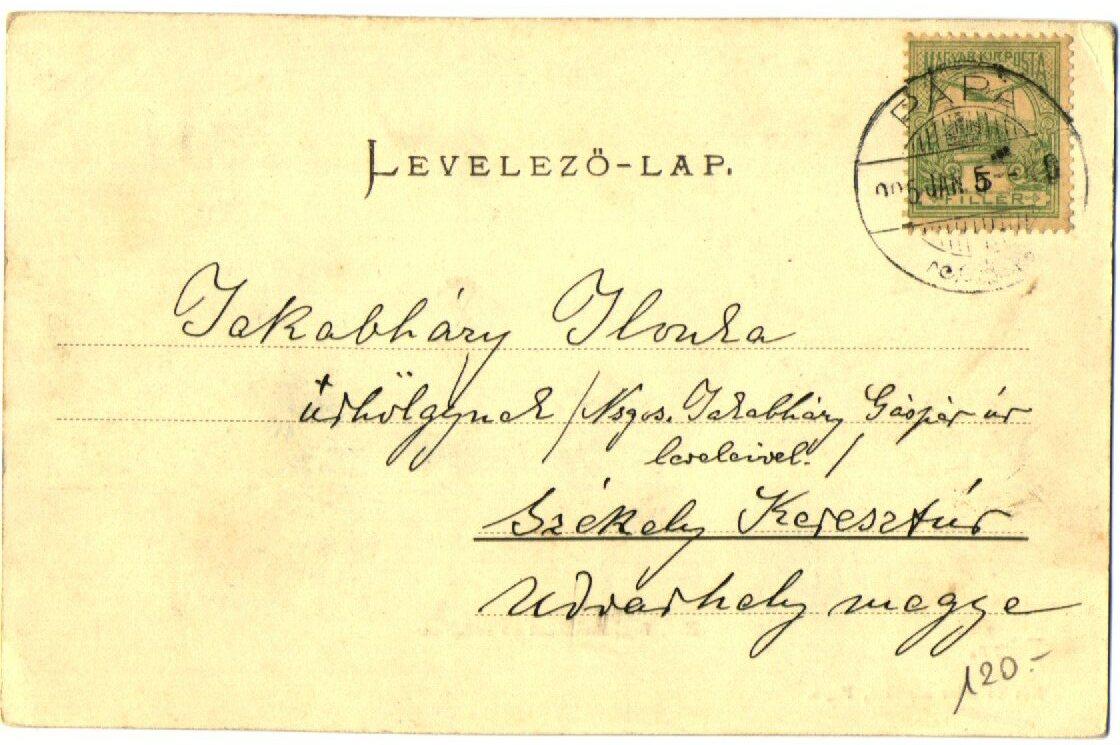 MAGYAR KIR. POSTA
PÁPA
905 JAN. 5
FILLÉR
LEVELEZŐ-LAP.
Jakabháry Ilonka
úrhölgynek /Nsgos. Jakabháry Gáspár úr
leveleivel./
Székely Keresztúr
Udvarhely megye
120.-